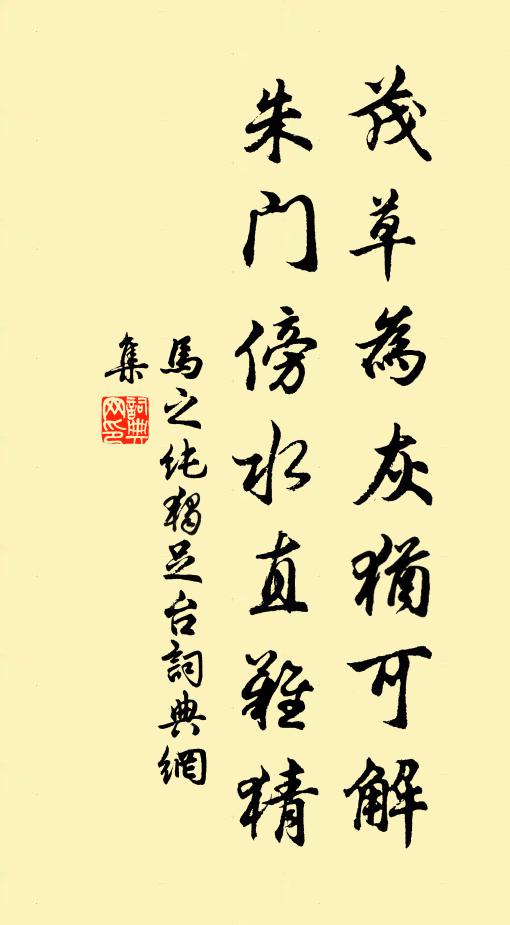 茂草為灰猶可解
朱門傍水直難猜
馬之純獨足台詞典網
集
詞典
网印